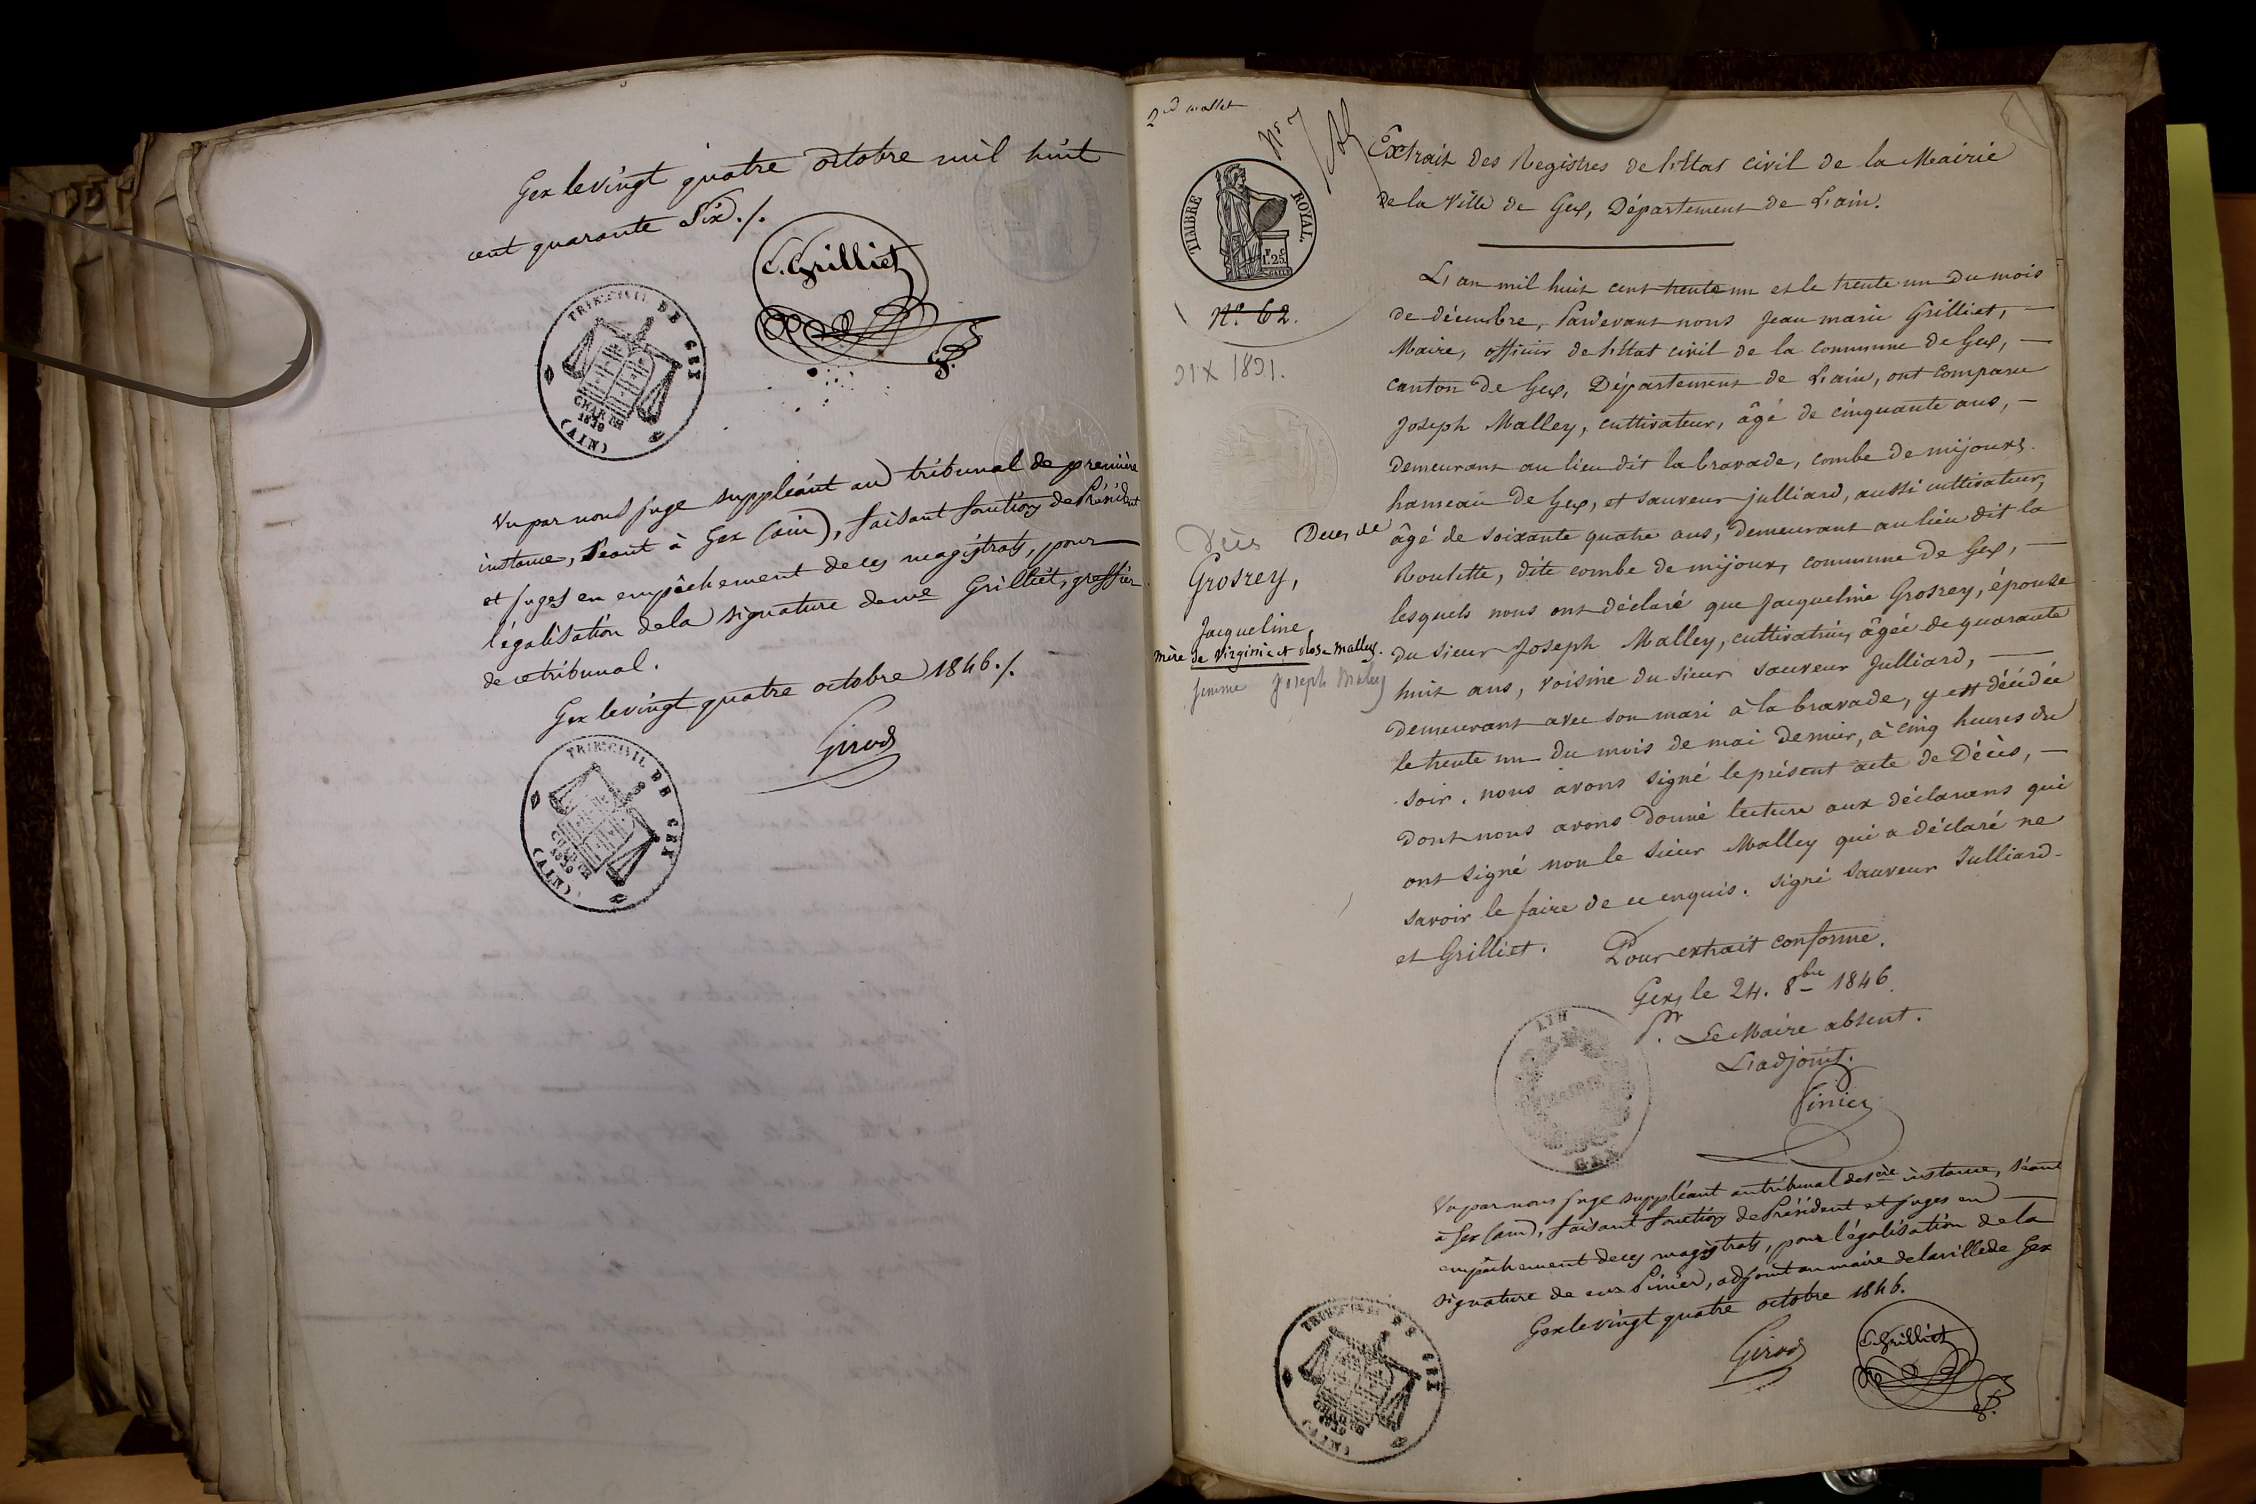 Gex le vingt quatre octobre mil huit
cent quarante Six./.
C. Grilliet
TRIB. CIVIL DE GEX
CHARTE
1830
(AIN)
Vu par nous juge suppléant au tribunal de première
instance, Séant à Gex (ain), faisant fonction de Président
et juges en empêchement de ces magistrats, pour
légalisation de la signature de me Grilliet, greffier
de ce tribunal.
Gex le vingt quatre octobre 1846./.
Girod
TRIB. CIVIL DE GEX
CHARTE
1830
(AIN)
2nd mallet
N° 7
TIMBRE ROYAL.
1F. 25C.
N° 62.
31 X 1831.
Décès
Deces de
Grosrey,
Jacqueline,
mère de Virginie et Rose Malley.
femme Joseph Malley
Extrait des Registres de l'Etat civil de la Mairie
de la Ville de Gex, Département de L'ain.
L'an mil huit cent trente un et le trente un du mois
de décembre, Pardevant nous Jean marie Grilliet,
Maire, officier de l'Etat civil de la commune de Gex,
canton de Gex, Département de L'ain, ont comparu
Joseph Malley, cultivateur, âgé de cinquante ans,
demeurant au lieu dit la bravade, combe de mijoux,
hameau de Gex, et sauveur julliard, aussi cultivateur,
âgé de soixante quatre ans, demeurant au lieu dit la
Roulette, dite combe de mijoux, commune de Gex,
lesquels nous ont déclaré que Jacqueline Grosrey, épouse
du sieur Joseph Malley, cultivatrice, âgée de quarante
huit ans, voisine du sieur sauveur Julliard,
demeurant avec son mari à la bravade, y est décédée
le trente un du mois de mai dernier, à cinq heures du
soir. nous avons signé le présent acte de Décès,
dont nous avons donné lecture aux déclarans qui
ont signé non le sieur Malley qui a déclaré ne
savoir le faire de ce enquis. signé sauveur Julliard
et Grilliet. Pour extrait conforme.
Gex, le 24. 8bre 1846.
Pr. Le Maire absent.
L'adjoint.
Pinier
AIN
MAIRIE
GEX
Vu par nous juge suppléant au tribunal de 1ère instance, séant
à Gex (ain), faisant fonction de Président et juges en
empêchement de ces magistrats, pour légalisation de la
signature de eux Pinier, adjoint au maire de la ville de Gex
Gex le vingt quatre octobre 1846.
Girod
C. Grilliet
TRIB. CIVIL DE GEX
CHARTE
1830
(AIN)